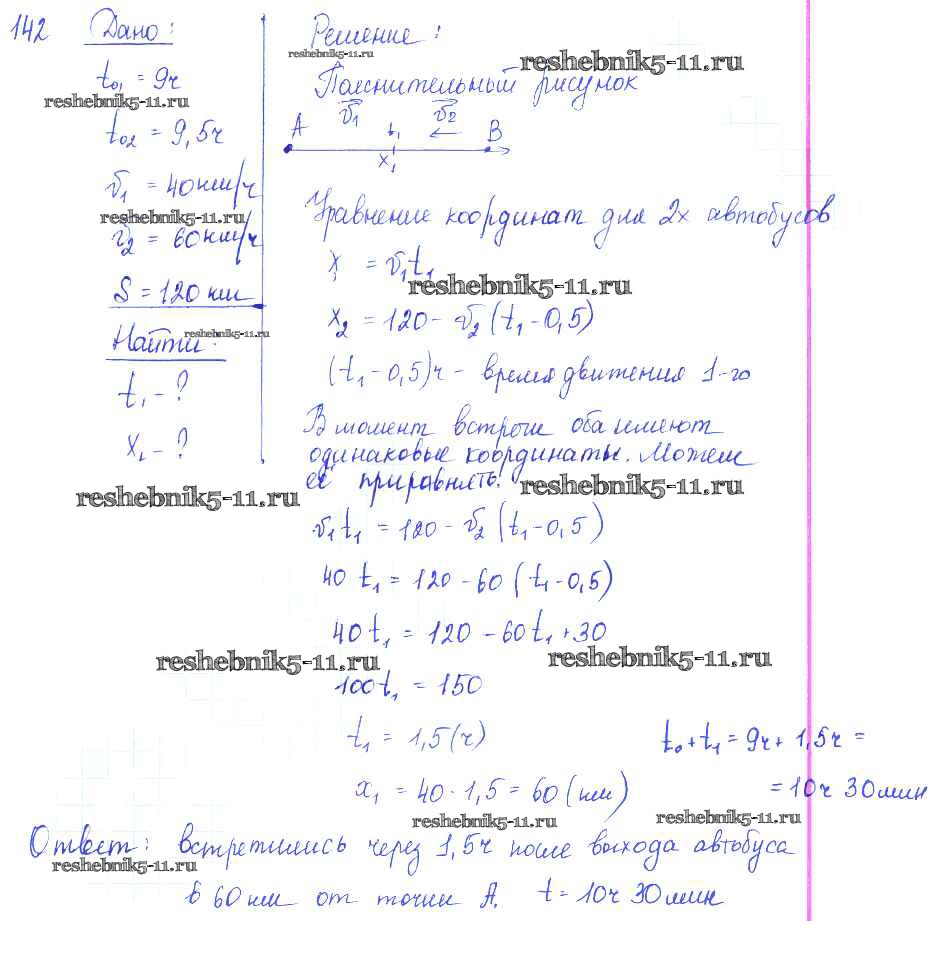 142 Дано:
t₀₁ = 9ч
reshebnik5-11.ru
t₀₂ = 9,5ч
v₁ = 40км/ч
reshebnik5-11.ru
v₂ = 60км/ч
S = 120 км
Найти: reshebnik5-11.ru
t₁ - ?
x₁ - ?
reshebnik5-11.ru
Решение:
reshebnik5-11.ru
reshebnik5-11.ru
Пояснительный рисунок
v₁ v₂
A t₁ B
x₁
Уравнение координат для 2х автобусов
x₁ = v₁t₁
reshebnik5-11.ru
x₂ = 120 - v₂(t₁ - 0,5)
(t₁ - 0,5)ч - время движения 1-го
В момент встречи оба имеют
одинаковые координаты. Можем
её приравнять! reshebnik5-11.ru
v₁t₁ = 120 - v₂(t₁ - 0,5)
40 t₁ = 120 - 60(t₁ - 0,5)
40t₁ = 120 - 60t₁ + 30
reshebnik5-11.ru reshebnik5-11.ru
100t₁ = 150
t₁ = 1,5(ч)
x₁ = 40 · 1,5 = 60(км)
reshebnik5-11.ru
t₀ + t₁ = 9ч + 1,5ч =
= 10ч 30мин
reshebnik5-11.ru
Ответ: встретились через 1,5ч после выхода автобуса
reshebnik5-11.ru
в 60км от точки А. t = 10ч 30мин